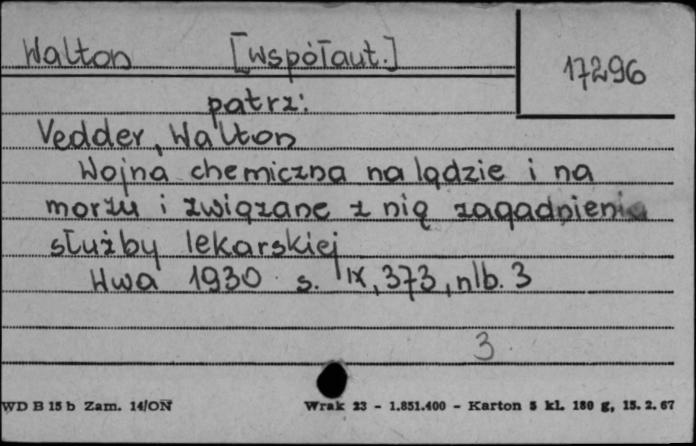 Walton [współaut.]
17296
patrz:
Vedder, Walton
Wojna chemiczna na lądzie i na
morzu i związane z nią zagadnienia
służby lekarskiej
Hwa 1930 s. IX, 373, nlb. 3
3
WD B 15 b Zam. 14/ON Wrak 23 - 1.851.400 - Karton 5 kl. 180 g, 15. 2. 67